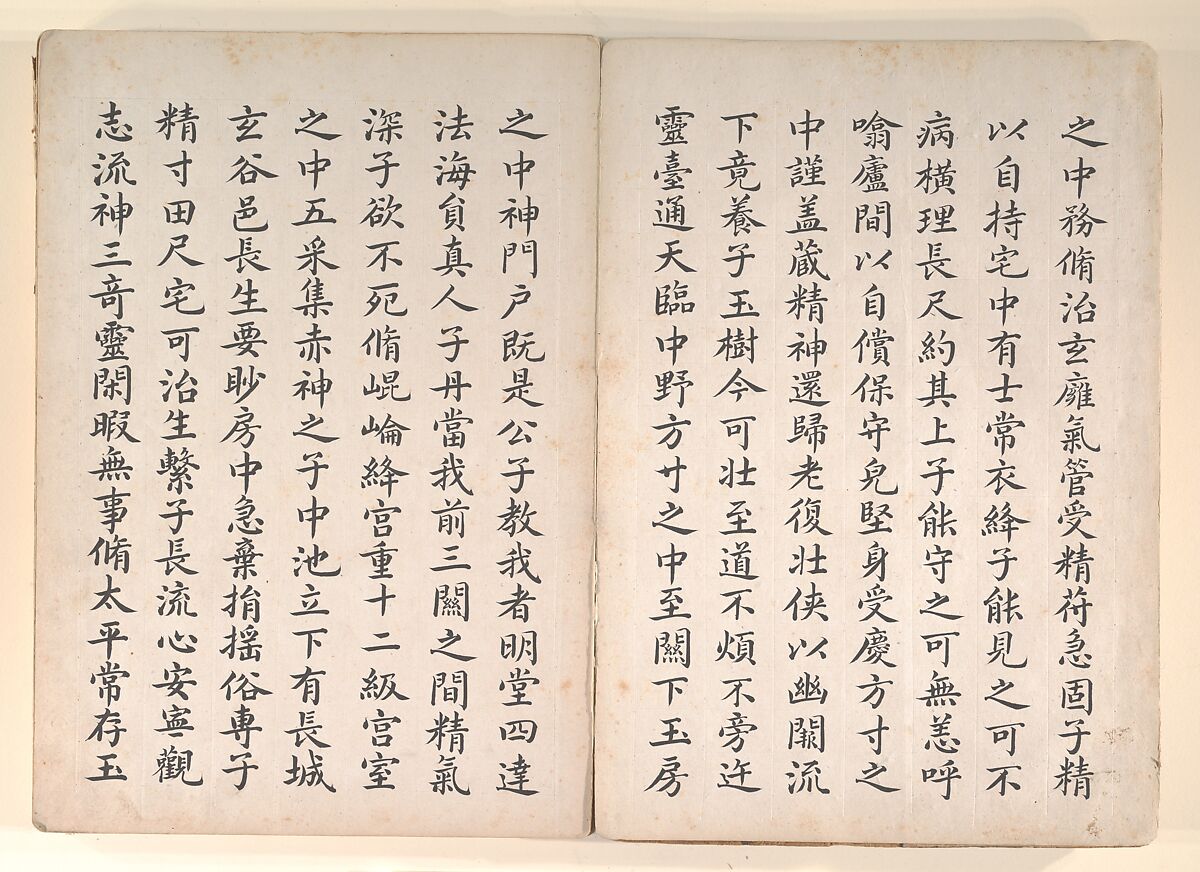 之中務脩治玄廱氣管受精苻急固子精
以自持宅中有士常衣絳子能見之可不
病橫理長尺約其上子能守之可無恙呼
噏廬間以自償保守皃堅身受慶方寸之
中謹盖蔵精神還歸老復壯俠以幽闕流
下竟養子玉樹今可壯至道不煩不旁迕
靈臺通天臨中野方寸之中至關下玉房
之中神門户既是公子教我者明堂四達
法海負真人子丹當我前三關之間精氣
深子欲不死脩崐崘絳宫重十二級宫室
之中五采集赤神之子中池立下有長城
玄谷邑長生要眇房中急棄捐搖俗專子
精寸田尺宅可治生繫子長流心安寧觀
志流神三奇靈閑暇無事脩太平常存玉